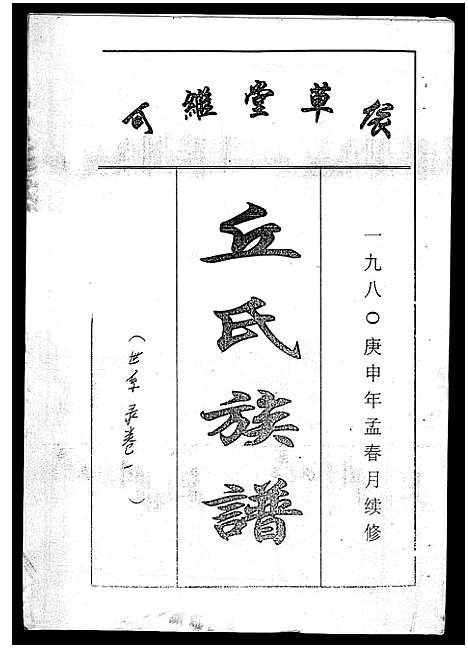 堂維
一九八〇庚申年孟春月续修
丘氏族譜
（世系录卷一）